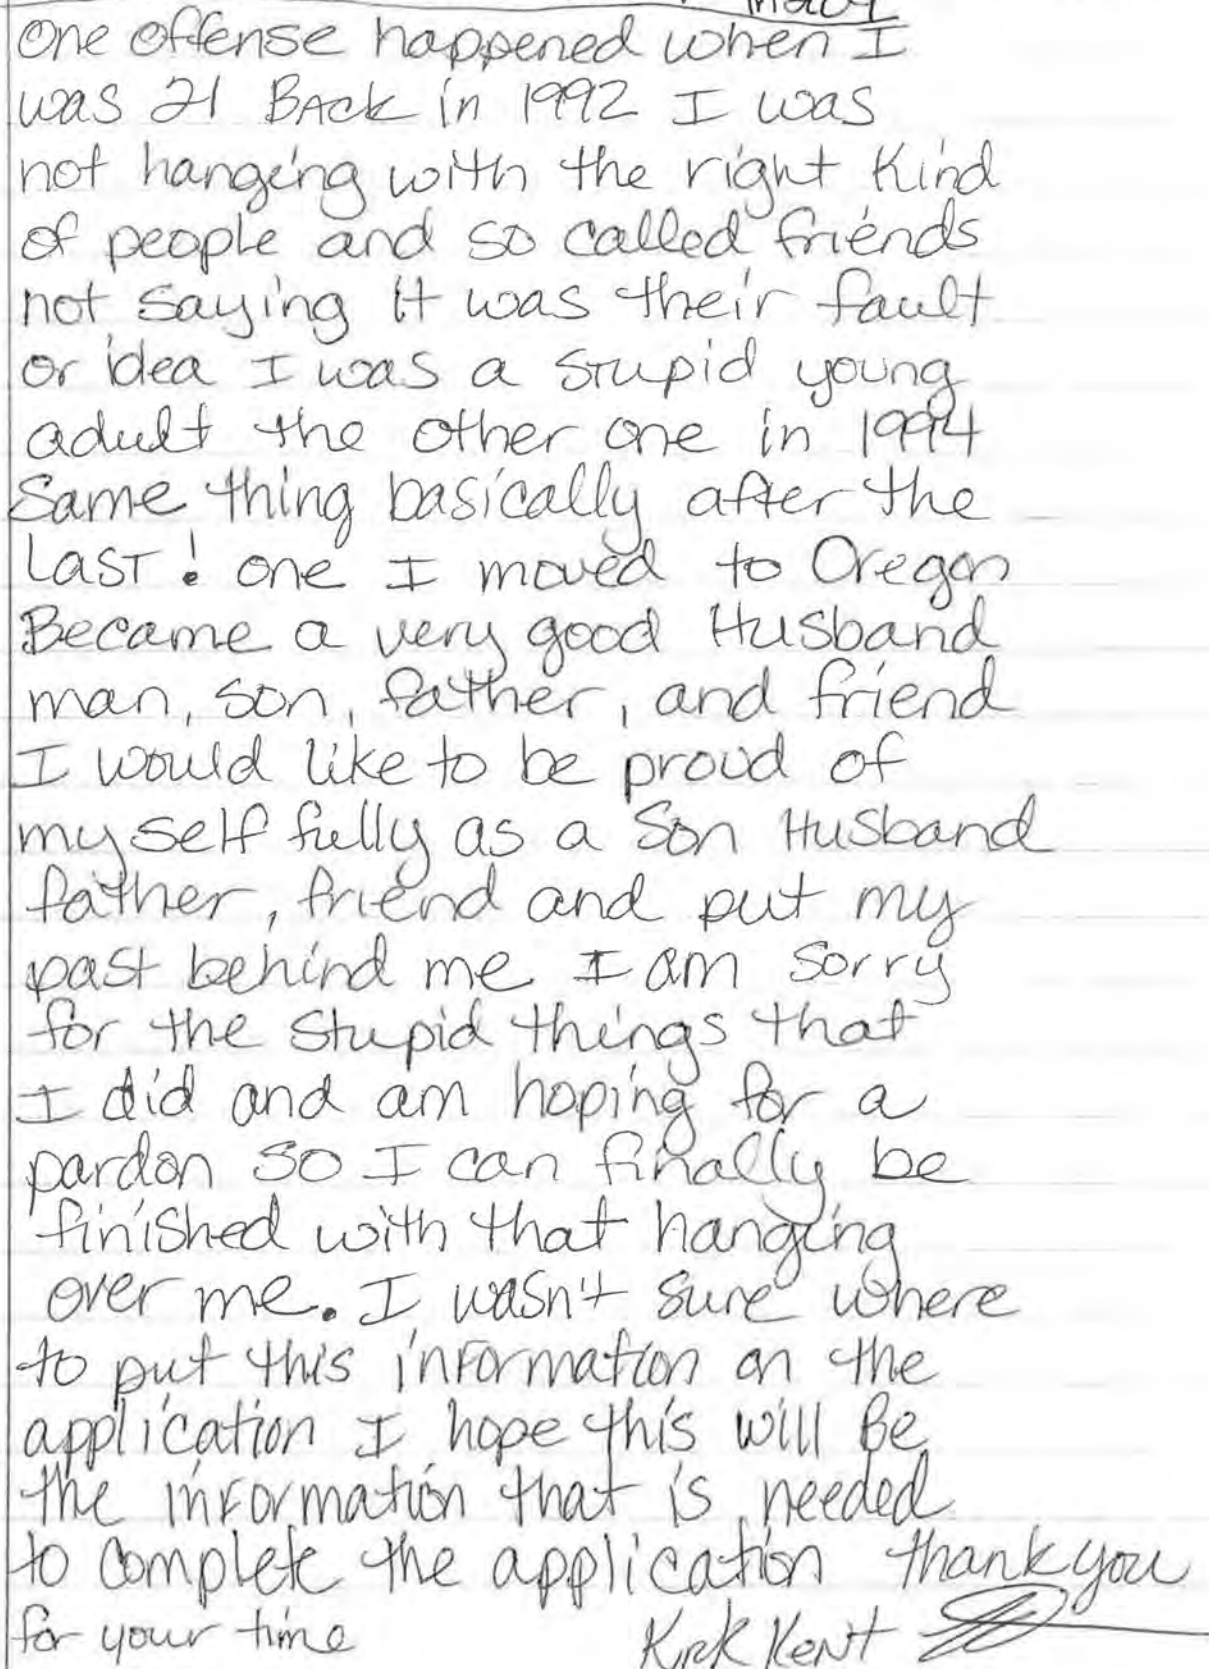 One offense happened when I
was 21 BAck in 1992 I was
not hanging with the right kind
of people and so called friends
not saying it was their fault
or idea I was a stupid young
adult the other one in 1994
Same thing basically after the
LAST! one I moved to Oregon
Became a very good Husband
man, son, father, and friend
I would like to be proud of
myself fully as a Son Husband
father, friend and put my
past behind me I am sorry
for the stupid things that
I did and am hoping for a
pardon so I can finally be
finished with that hanging
over me. I wasn't sure where
to put this information on the
application I hope this will Be
the information that is needed
to complete the application thank you
for your time Kirk Kent